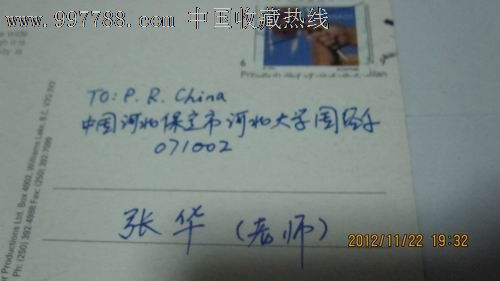 www.997788.com 中国收藏热线
6
TO: P. R. China
中国河北保定市河北大学
071002
张华(老师)
Productions Ltd. Box 4602, Williams Lake, B.C. V2G 2V5
Ph: (250) 392-4988 Fax: (250) 392-7099
2012/11/22 19:32